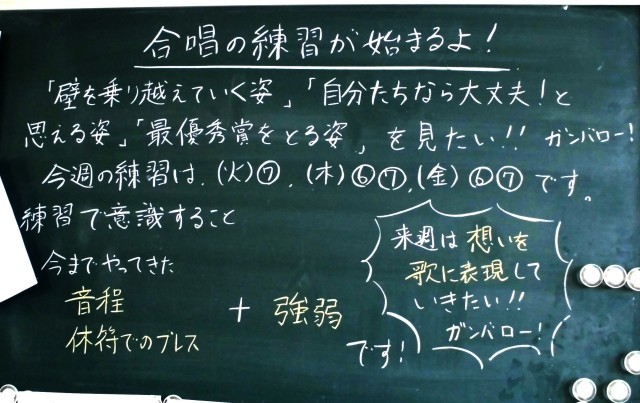 合唱の練習が始まるよ!
「壁を乗り越えていく姿」「自分たちなら大丈夫!と
思える姿」「最優秀賞をとる姿」を見たい!! ガンバロー!
今週の練習は、(火)⑦、(木)⑥⑦、(金)⑥⑦です。
練習で意識すること
今までやってきた
音程
休符でのブレス
+ 強弱
です!
来週は想いを
歌に表現して
いきたい!!
ガンバロー!